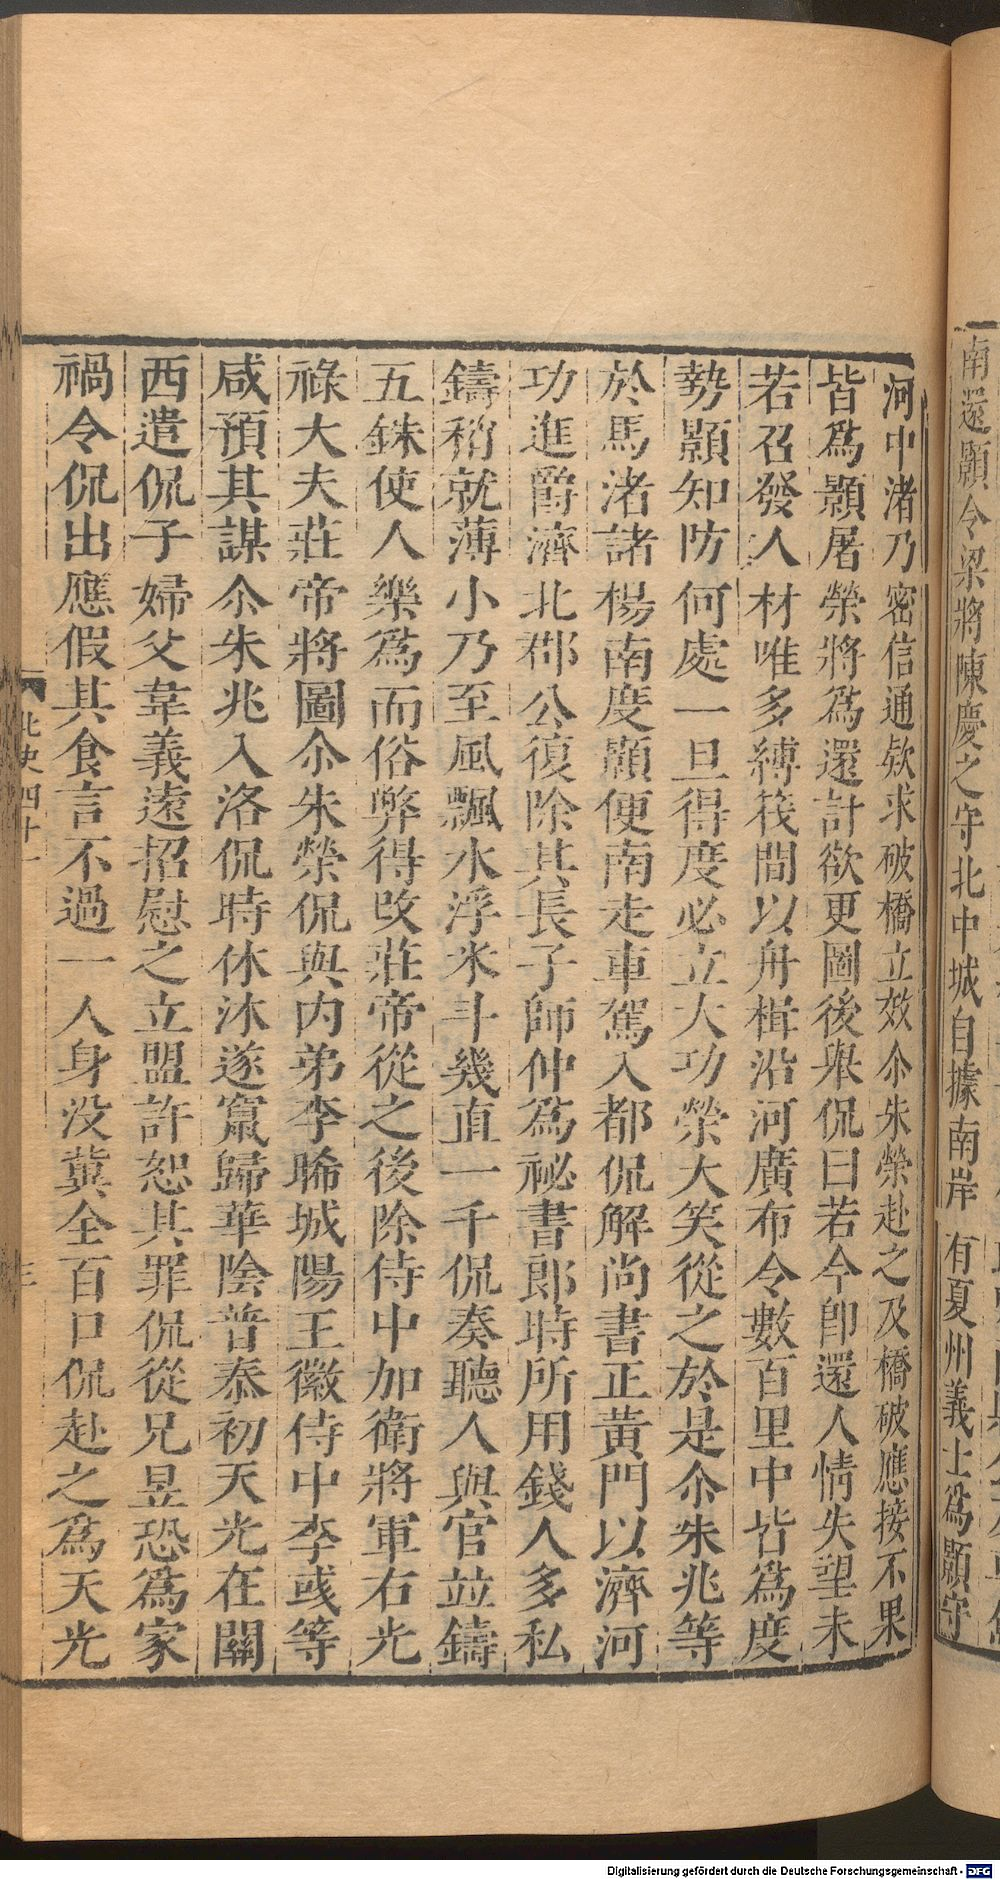 南還顥令梁將陳慶之守北中城自據南岸有夏州義士爲顥守
河中渚乃密信通欵求破橋立效尒朱榮赴之及橋破應接不果
皆爲顥屠榮將爲還計欲更圖後舉侃曰若今卽還人情失望未
若召發人材唯多縛筏間以舟楫沿河廣布令數百里中皆爲度
勢顥知防何處一旦得度必立大功榮大笑從之於是尒朱兆等
於馬渚諸楊南度顥便南走車駕入都侃解尚書正黃門以濟河
功進爵濟北郡公復除其長子師仲爲祕書郎時所用錢人多私
鑄稍就薄小乃至風飄水浮米斗幾直一千侃奏聽人與官並鑄
五銖使人樂爲而俗弊得改莊帝從之後除侍中加衛將軍右光
祿大夫莊帝將圖尒朱榮侃與內弟李晞城陽王徽侍中李彧等
咸預其謀尒朱兆入洛侃時休沐遂竄歸華陰普泰初天光在關
西遣侃子婦父韋義遠招慰之立盟許恕其罪侃從兄昱恐爲家
禍令侃出應假其食言不過一人身没冀全百口侃赴之爲天光
北史四十一
三
Digitalisierung gefördert durch die Deutsche Forschungsgemeinschaft - DFG